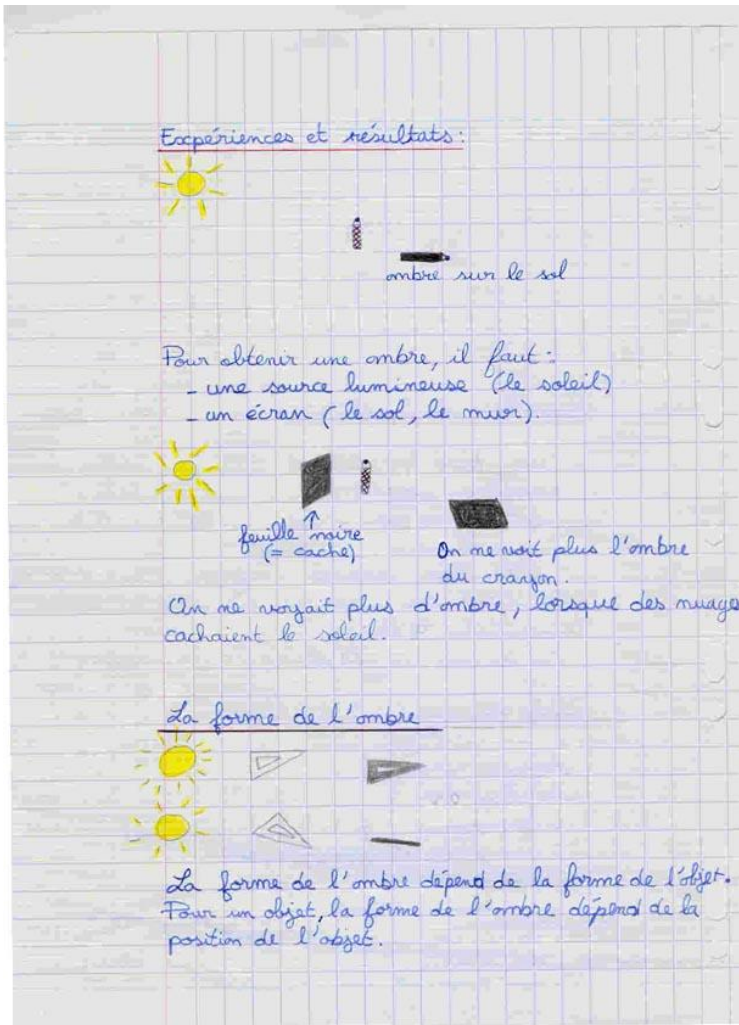 Expériences et résultats:
ombre sur le sol
Pour obtenir une ombre, il faut:
- une source lumineuse (le soleil)
- un écran (le sol, le mur).
feuille noire
(= cache)
On ne voit plus l'ombre
du crayon.
On ne voyait plus d'ombre, lorsque des nuages
cachaient le soleil.
La forme de l'ombre
La forme de l'ombre dépend de la forme de l'objet.
Pour un objet, la forme de l'ombre dépend de la
position de l'objet.